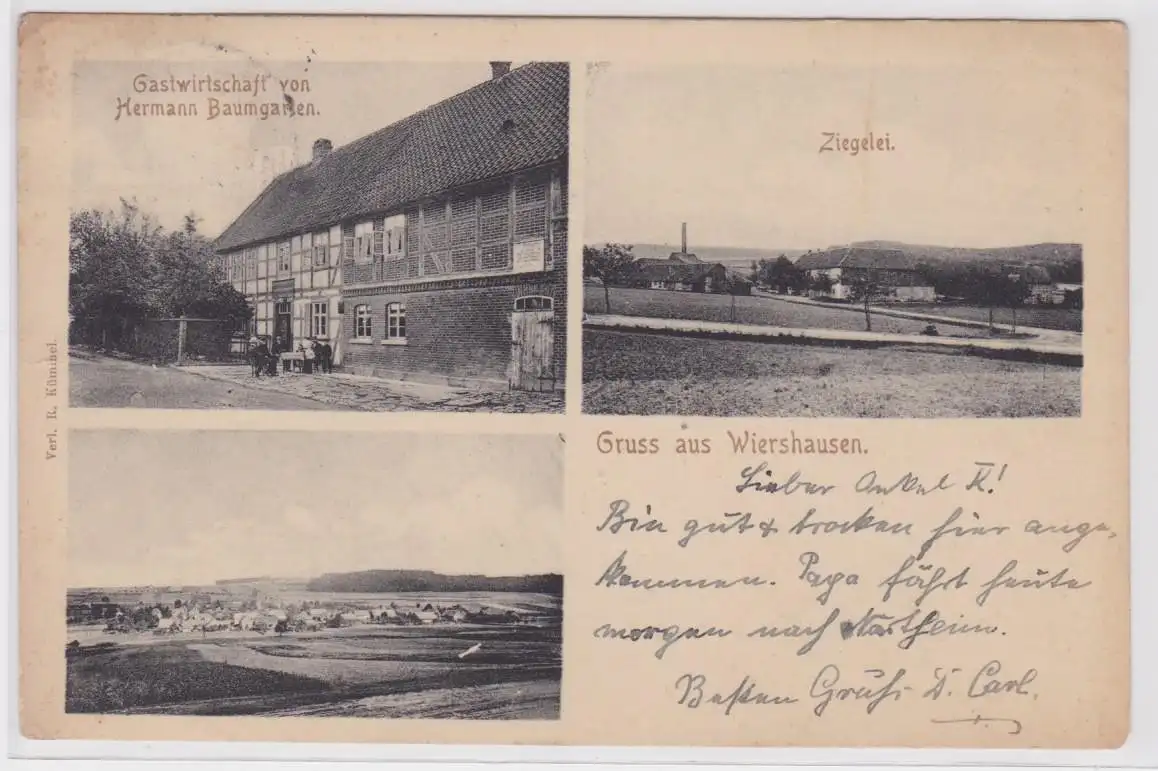 Gastwirtschaft von
Hermann Baumgarten.
Ziegelei.
Verl. R. Kümmel.
Gruss aus Wiershausen.
Lieber Onkel K!
Bin gut & trocken hier ange-
kommen. Papa fährt heute
morgen nach Northeim.
Besten Gruß D. Carl.